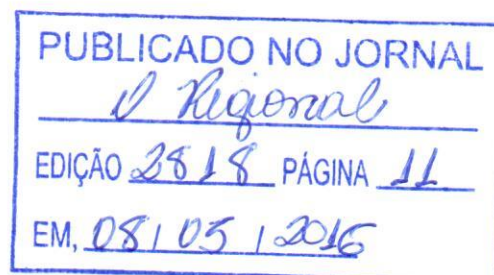 PUBLICADO NO JORNAL
O Regional
EDIÇÃO 2818 PÁGINA 11
EM, 08/05/2016